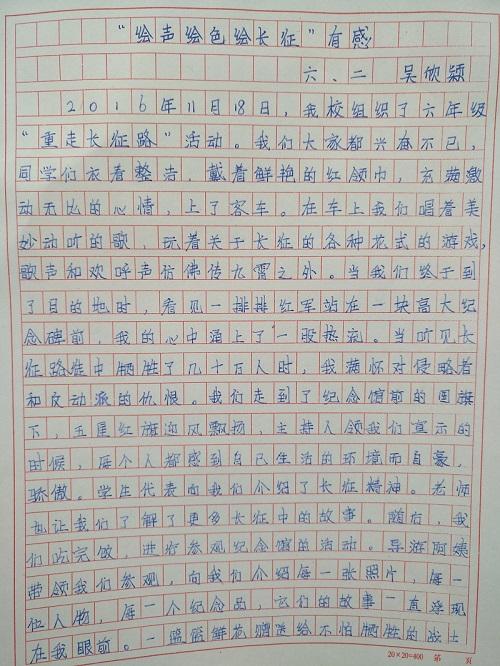 “绘声绘色绘长征”有感
六、二 吴欣颖
2016年11月18日，我校组织了六年级
“重走长征路”活动。我们大家都兴奋不已，
同学们衣着整洁，戴着鲜艳的红领巾，充满激
动无比的心情，上了客车。在车上我们唱着美
妙动听的歌，玩着关于长征的各种花式的游戏，
歌声和欢呼声仿佛传九霄之外。当我们终于到
了目的地时，看见一排排红军站在一块高大纪
念碑前，我的心中涌上了一股热流。当听见长
征路途中牺牲了几十万人时，我满怀对侵略者
和反动派的仇恨。我们走到了纪念馆前的国旗
下，五星红旗迎风飘扬，主持人领我们宣示的
时候，每个人都感到自己生活的环境而自豪、
骄傲。学生代表向我们介绍了长征精神。老师
也让我们了解了更多长征中的故事。随后，我
们吃完饭，进行参观纪念馆的活动。导游阿姨
带领我们参观，向我们介绍每一张照片，每一
位人物，每一个纪念品，它们的故事一直浮现
在我眼前。一篮篮鲜花赠送给不怕牺牲的战士
20×20=400 第 页